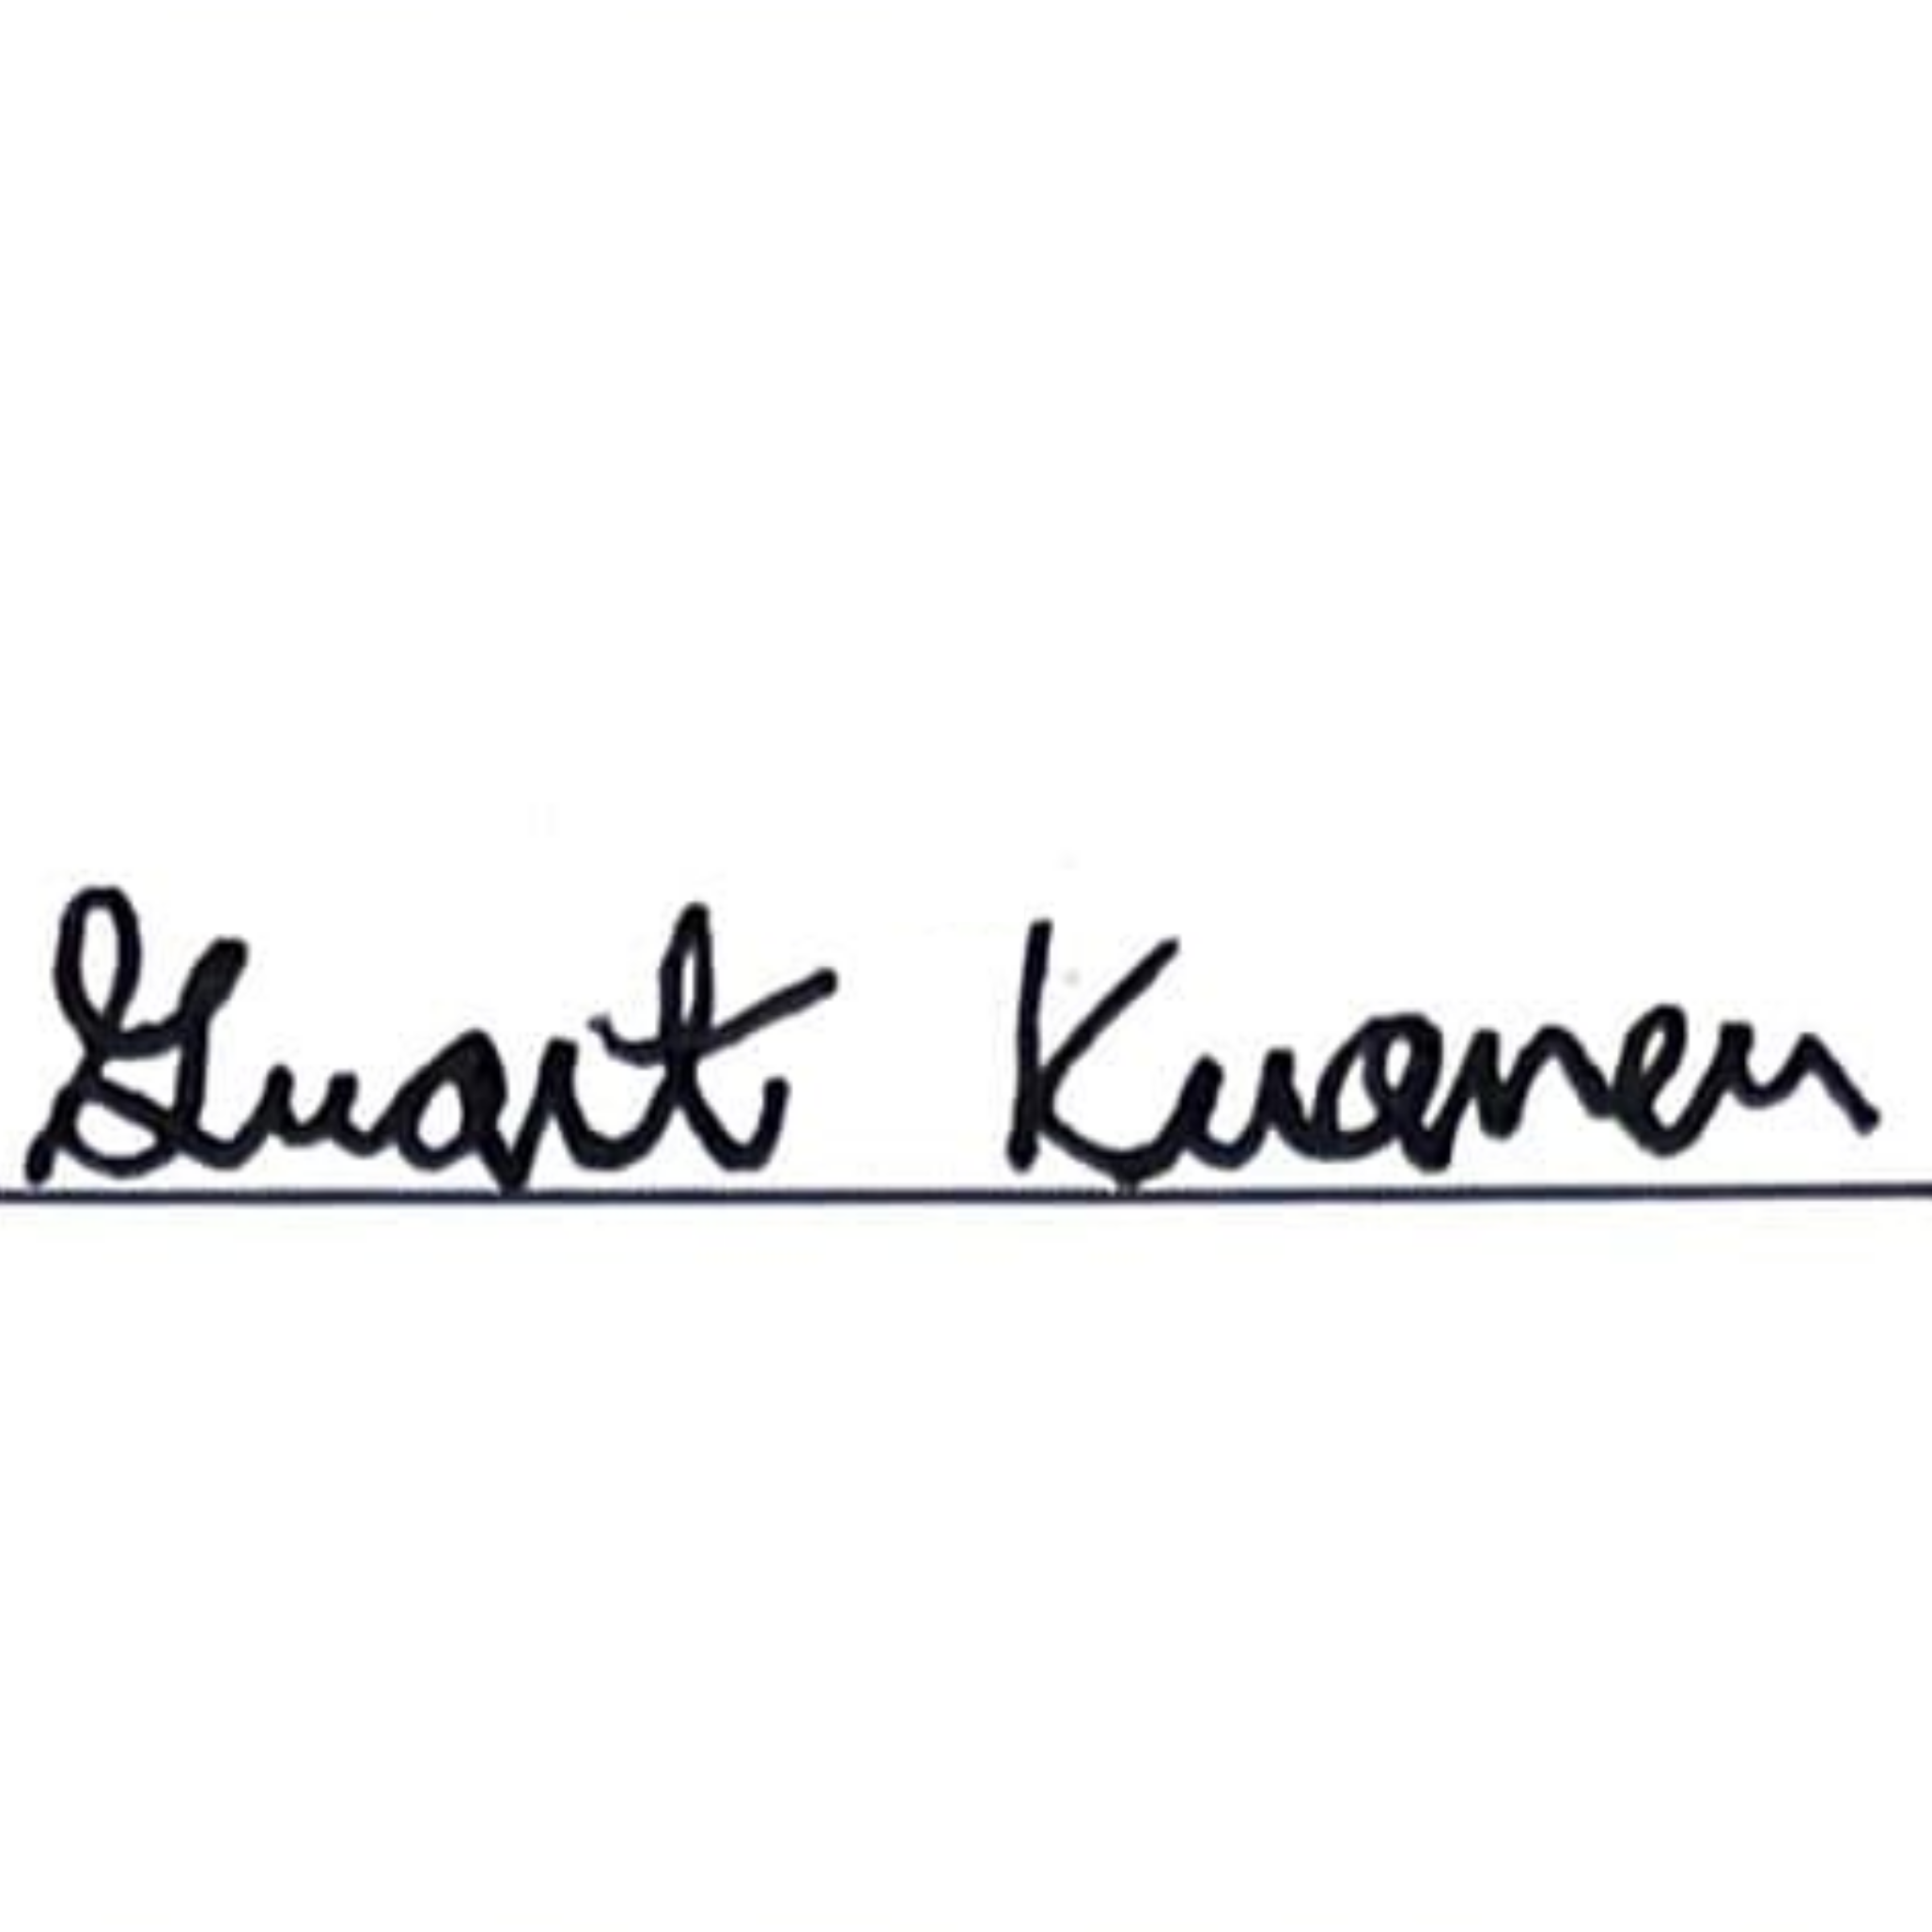 Stuart Kuanen